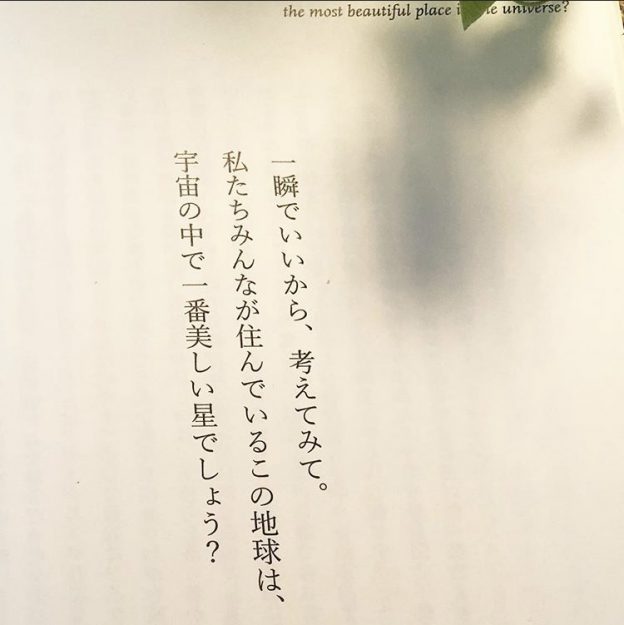 the most beautiful place i universe?
一瞬でいいから、考えてみて。
私たちみんなが住んでいるこの地球は、
宇宙の中で一番美しい星でしょう？